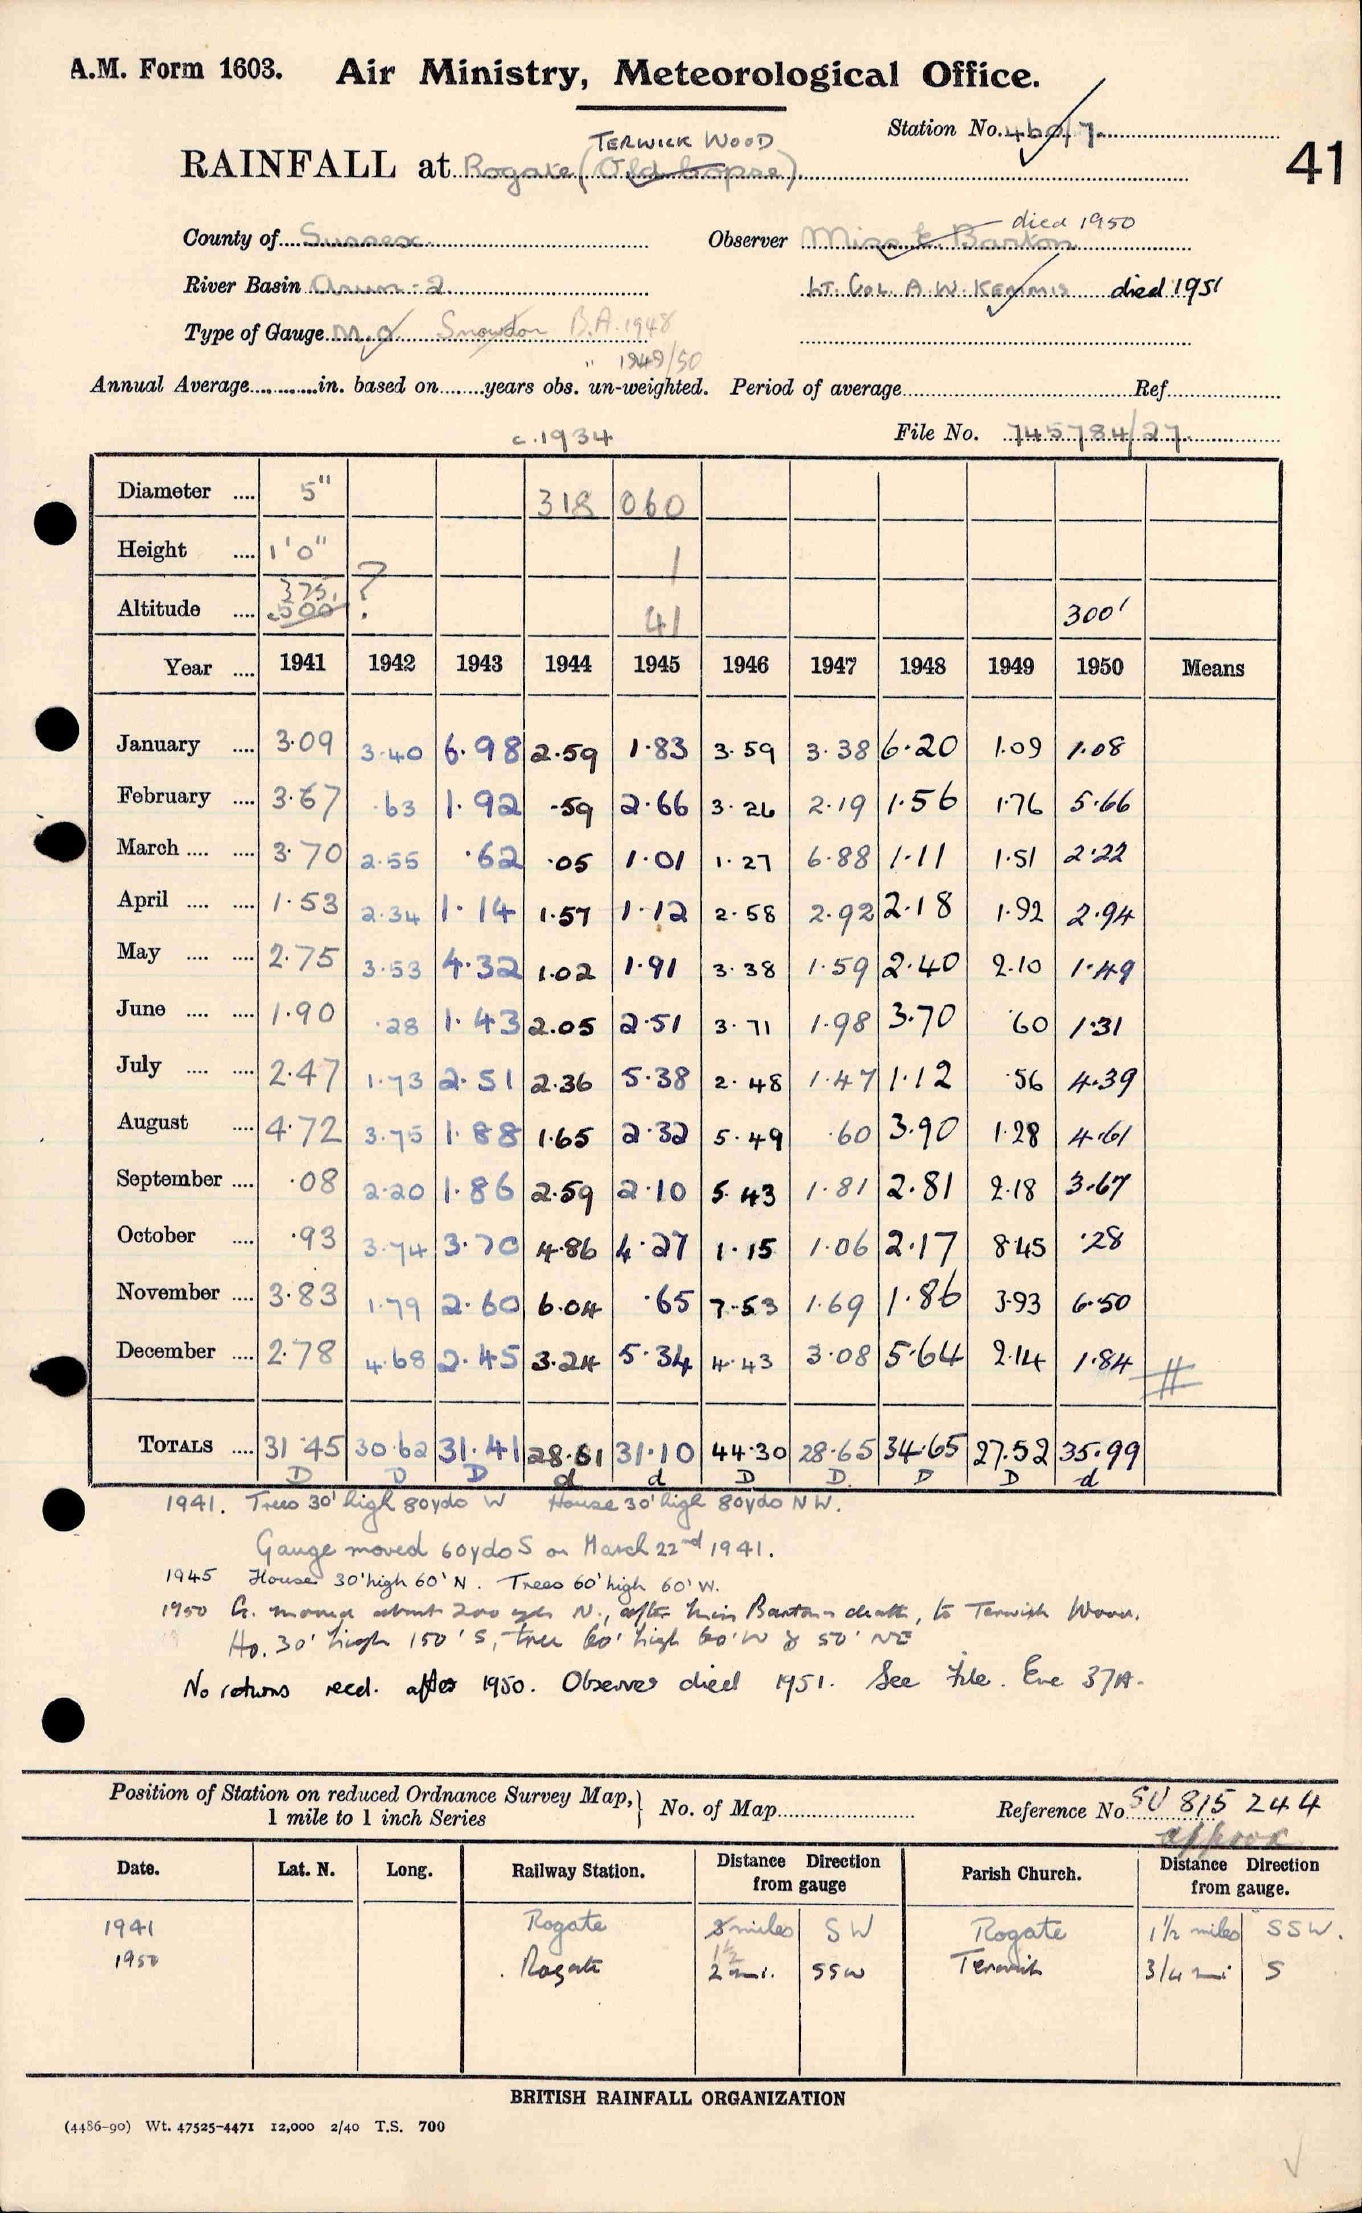 A.M. Form 1603. Air Ministry, Meteorological Office.
Station No. 460/7
41
TERWICK WOOD
RAINFALL at Rogate (Old Copse)
died 1950
County of Sussex Observer Miss E. Barton
River Basin Arun - 2. Lt. Col. A. W. Kemmis died 1951
Type of Gauge M.O. Snowdon B.A. 1948
" 1949/50
Annual Average in. based on years obs. un-weighted. Period of average Ref.
c. 1934 File No. 745784/27
Diameter 5" 318 060
Height 1'0" 1
375, ?
Altitude 500 41 300'
Year 1941 1942 1943 1944 1945 1946 1947 1948 1949 1950 Means
January 3.09 3.40 6.98 2.59 1.83 3.59 3.38 6.20 1.09 1.08
February 3.67 .63 1.92 .59 2.66 3.26 2.19 1.56 1.76 5.66
March 3.70 2.55 .62 .05 1.01 1.27 6.88 1.11 1.51 2.22
April 1.53 2.34 1.14 1.57 1.12 2.58 2.92 2.18 1.92 2.94
May 2.75 3.53 4.32 1.02 1.91 3.38 1.59 2.40 2.10 1.49
June 1.90 .28 1.43 2.05 2.51 3.71 1.98 3.70 .60 1.31
July 2.47 1.73 2.51 2.36 5.38 2.48 1.47 1.12 .56 4.39
August 4.72 3.75 1.88 1.65 2.32 5.49 .60 3.90 1.28 4.61
September .08 2.20 1.86 2.59 2.10 5.43 1.81 2.81 2.18 3.67
October .93 3.74 3.70 4.86 4.27 1.15 1.06 2.17 8.45 .28
November 3.83 1.79 2.60 6.04 .65 7.53 1.69 1.86 3.93 6.50
December 2.78 4.68 2.45 3.24 5.34 4.43 3.08 5.64 2.14 1.84 #
TOTALS 31.45 30.62 31.41 28.61 31.10 44.30 28.65 34.65 27.52 35.99
D D D d d D D. D D d
1941. Trees 30' high 80yds W House 30' high 80yds NW.
Gauge moved 60yds S on March 22nd 1941.
1945 House 30' high 60' N. Trees 60' high 60' W.
1950 G. moved about 200 yds N., after Miss Barton's death, to Terwick Wood.
Ho. 30' high 150' S, tree 60' high 60' W & 50' NE
No returns recd. after 1950. Observer died 1951. See File. Enc 37A.
Position of Station on reduced Ordnance Survey Map,
1 mile to 1 inch Series } No. of Map Reference No. SU 815 244
approx
Date. Lat. N. Long. Railway Station. Distance Direction from gauge Parish Church. Distance Direction from gauge.
1941 Rogate 2 miles SW Rogate 1½ miles SSW.
1½
1950 Rogate 2 mi. SSW Terwick 3/4 mi S
BRITISH RAINFALL ORGANIZATION
(4486-90) Wt. 47525-4471 12,000 2/40 T.S. 700